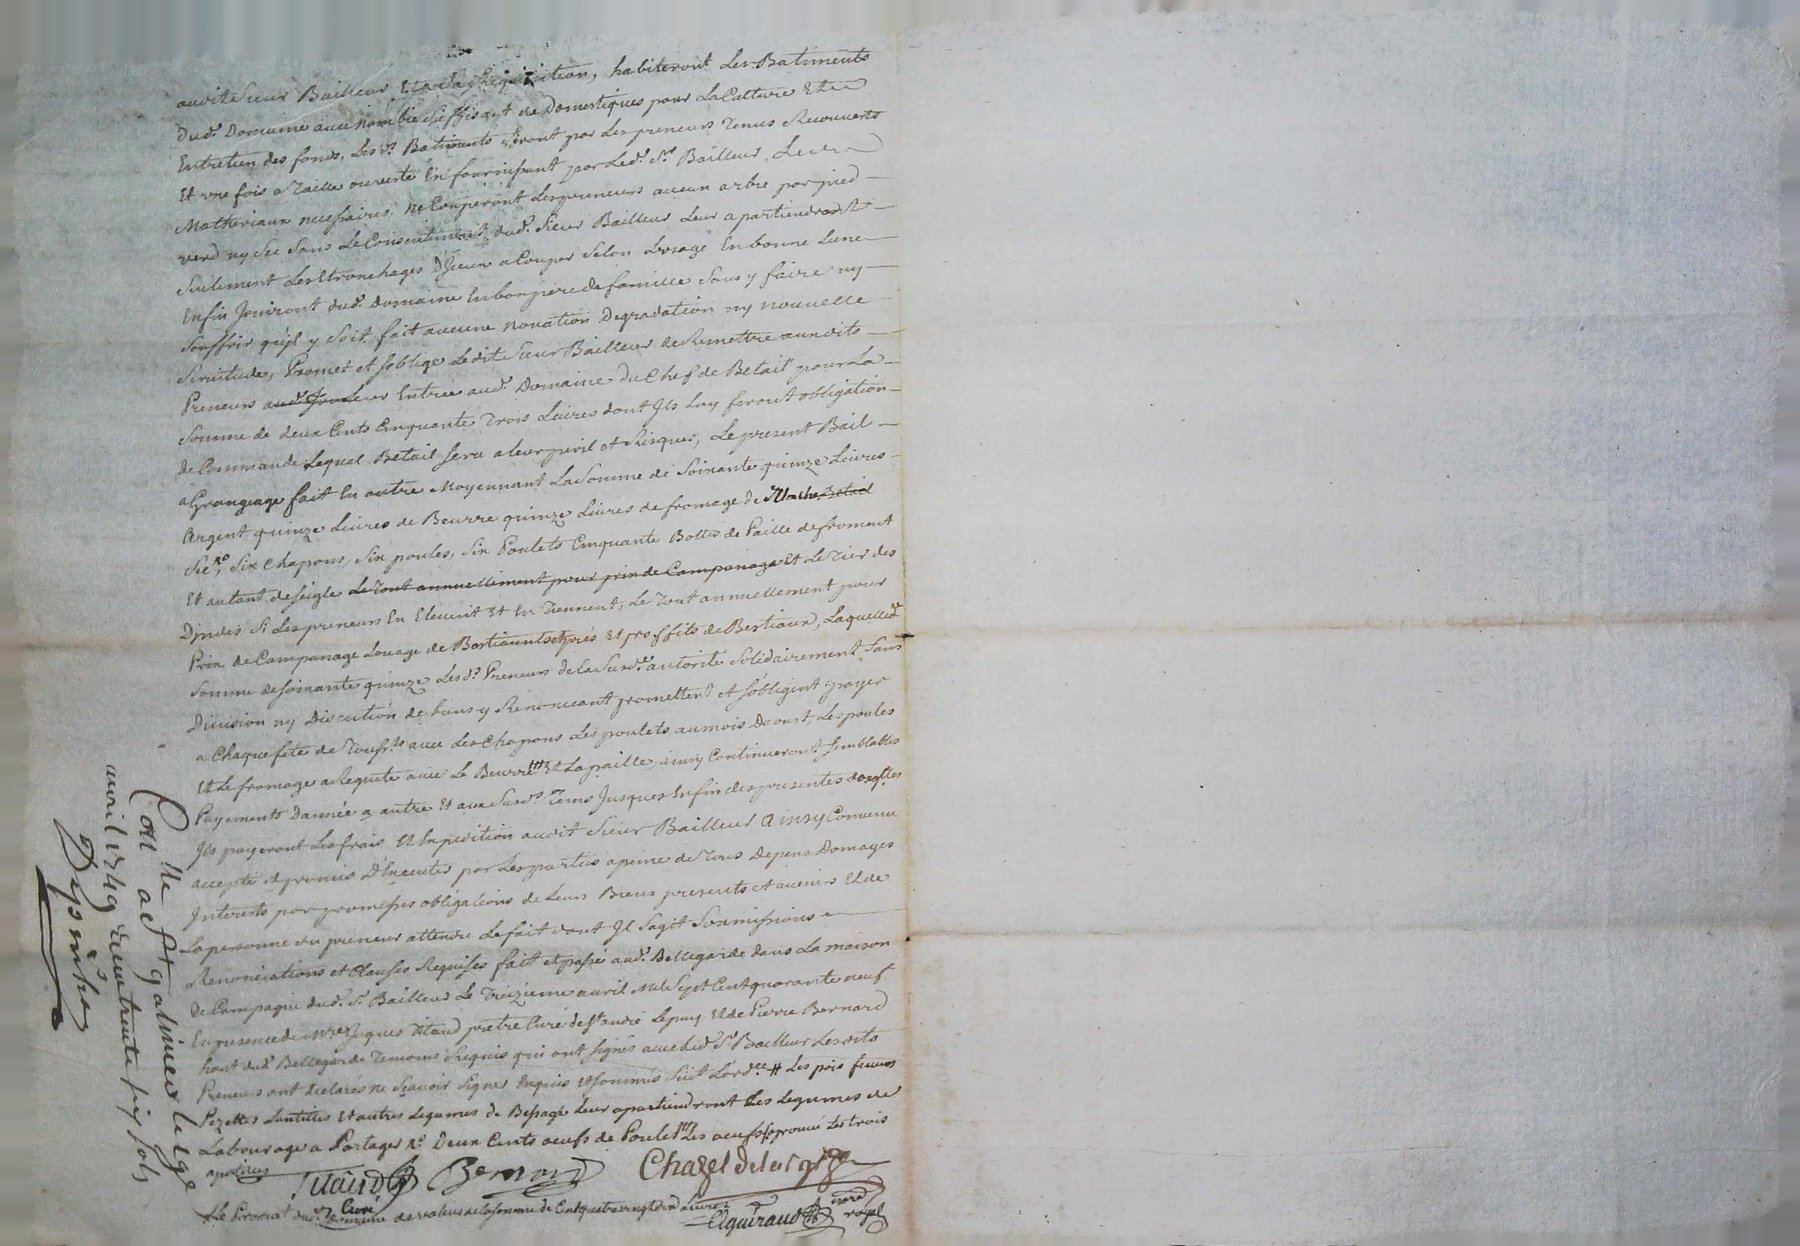 audit Sieur Bailleur Et a Sa Requisition, habiteront Les Batiments
Dud. Domaine avec nombre Suffisant de Domestiques pour La Culture Et
Entretien des fonds, Lesd. Batiments Seront par Les preneurs Tenus Recouverts
Et une fois a Taille ouverte En fournissant par Led. Sr Bailleur Les
Matheriaux necessaires. ne Couperont Les preneurs aucun arbre par pied
verd ny Sec Sans Le Consentement dud. Sieur Bailleur Leur apartiendront
Seulement Les Etronchages D'Iceux a Couper Selon L'usage En bonne Lune
Enfin Jouiront dud. Domaine En bon pere de famille Sans y faire ny
Souffrir qu'il y Soit fait aucune novation Degradation ny nouvelle
Servitude, Promet et S'oblige Ledit Sieur Bailleur de Remettre auxdits
Preneurs a Leur Entrée aud. Domaine du Chef de Betail pour La
Somme de deux Cents Cinquante Trois Livres dont Ils Luy feront obligation
de Commande Lequel Betail Sera a leur peril et Risques, Le present Bail
a Grangeage fait En outre Moyennant La Somme de Soixante quinze Livres
Argent quinze Livres de Beurre quinze Livres de fromage de
Six Chapons, Six poules, Six Poulets Cinquante Bottes de Paille de froment
Et autant de Seigle Le Tout annuellement pour prix de Campanage Et Le Tier des
Dindes Si Les preneurs En Elevent Et En Tiennent, Le Tout annuellement pour
Prix de Campanage Louage de Bestiaux prés Et proffits de Bestiaux, Laquelle
Somme de Soixante quinze Lesd. Preneurs de la Susd. autorité Solidairement Sans
Division ny Discution de biens y Renonceant promettent et S'obligent payer
a Chaque fete de Toussts avec Les Chapons Les poulets au mois D'aoust, Les poules
Et Le fromage a Requete avec Le Beurre Et La paille, ainsy Continueront Semblables
Payements D'année a autre Et aux Susd. Tems Jusques En fin des presentes
Ils payeront Les frais Et Expedition audit Sieur Bailleur Ainsy Convenu
accepté et promis D'Executer par Les parties a peine de Tous Depens Domages
Interets par promesses obligations de Leurs Biens presents et avenir Et de
La personne du preneur attendu Le fait dont Il S'agit Soumissions
Renonciations et Clauses Requises fait et passé aud. Bellegarde dans La maison
De Campagne dud. Sr Bailleur Le Treizieme avril Mil Sept Cent quarante neuf
En presence de Jaques Vitaud pretre Curé de St André Lepuy Et de Pierre Bernard
dud. Bellegarde Temoins Requis qui ont Signés avec Led. Sr Bailleur Lesdits
Preneurs ont declarés ne Scavoir Signer Enquis Et Sommés Suit L'ordce # Les pois
Pezettes Lantilles Et autres Legumes de Leur apartiendront Les Legumes de
Labourage a Partager Deux Cents oeufs de Poules Les oeufs aprouvé Les trois
apostilles
Vitaud Curé Bernard Chazel
Le Domaine de valeur de la Somme de Cent quatre vingt Livres
Elguiraud nore royal
Collé act galmier le 19e
avril 1749 Recu trente six sols